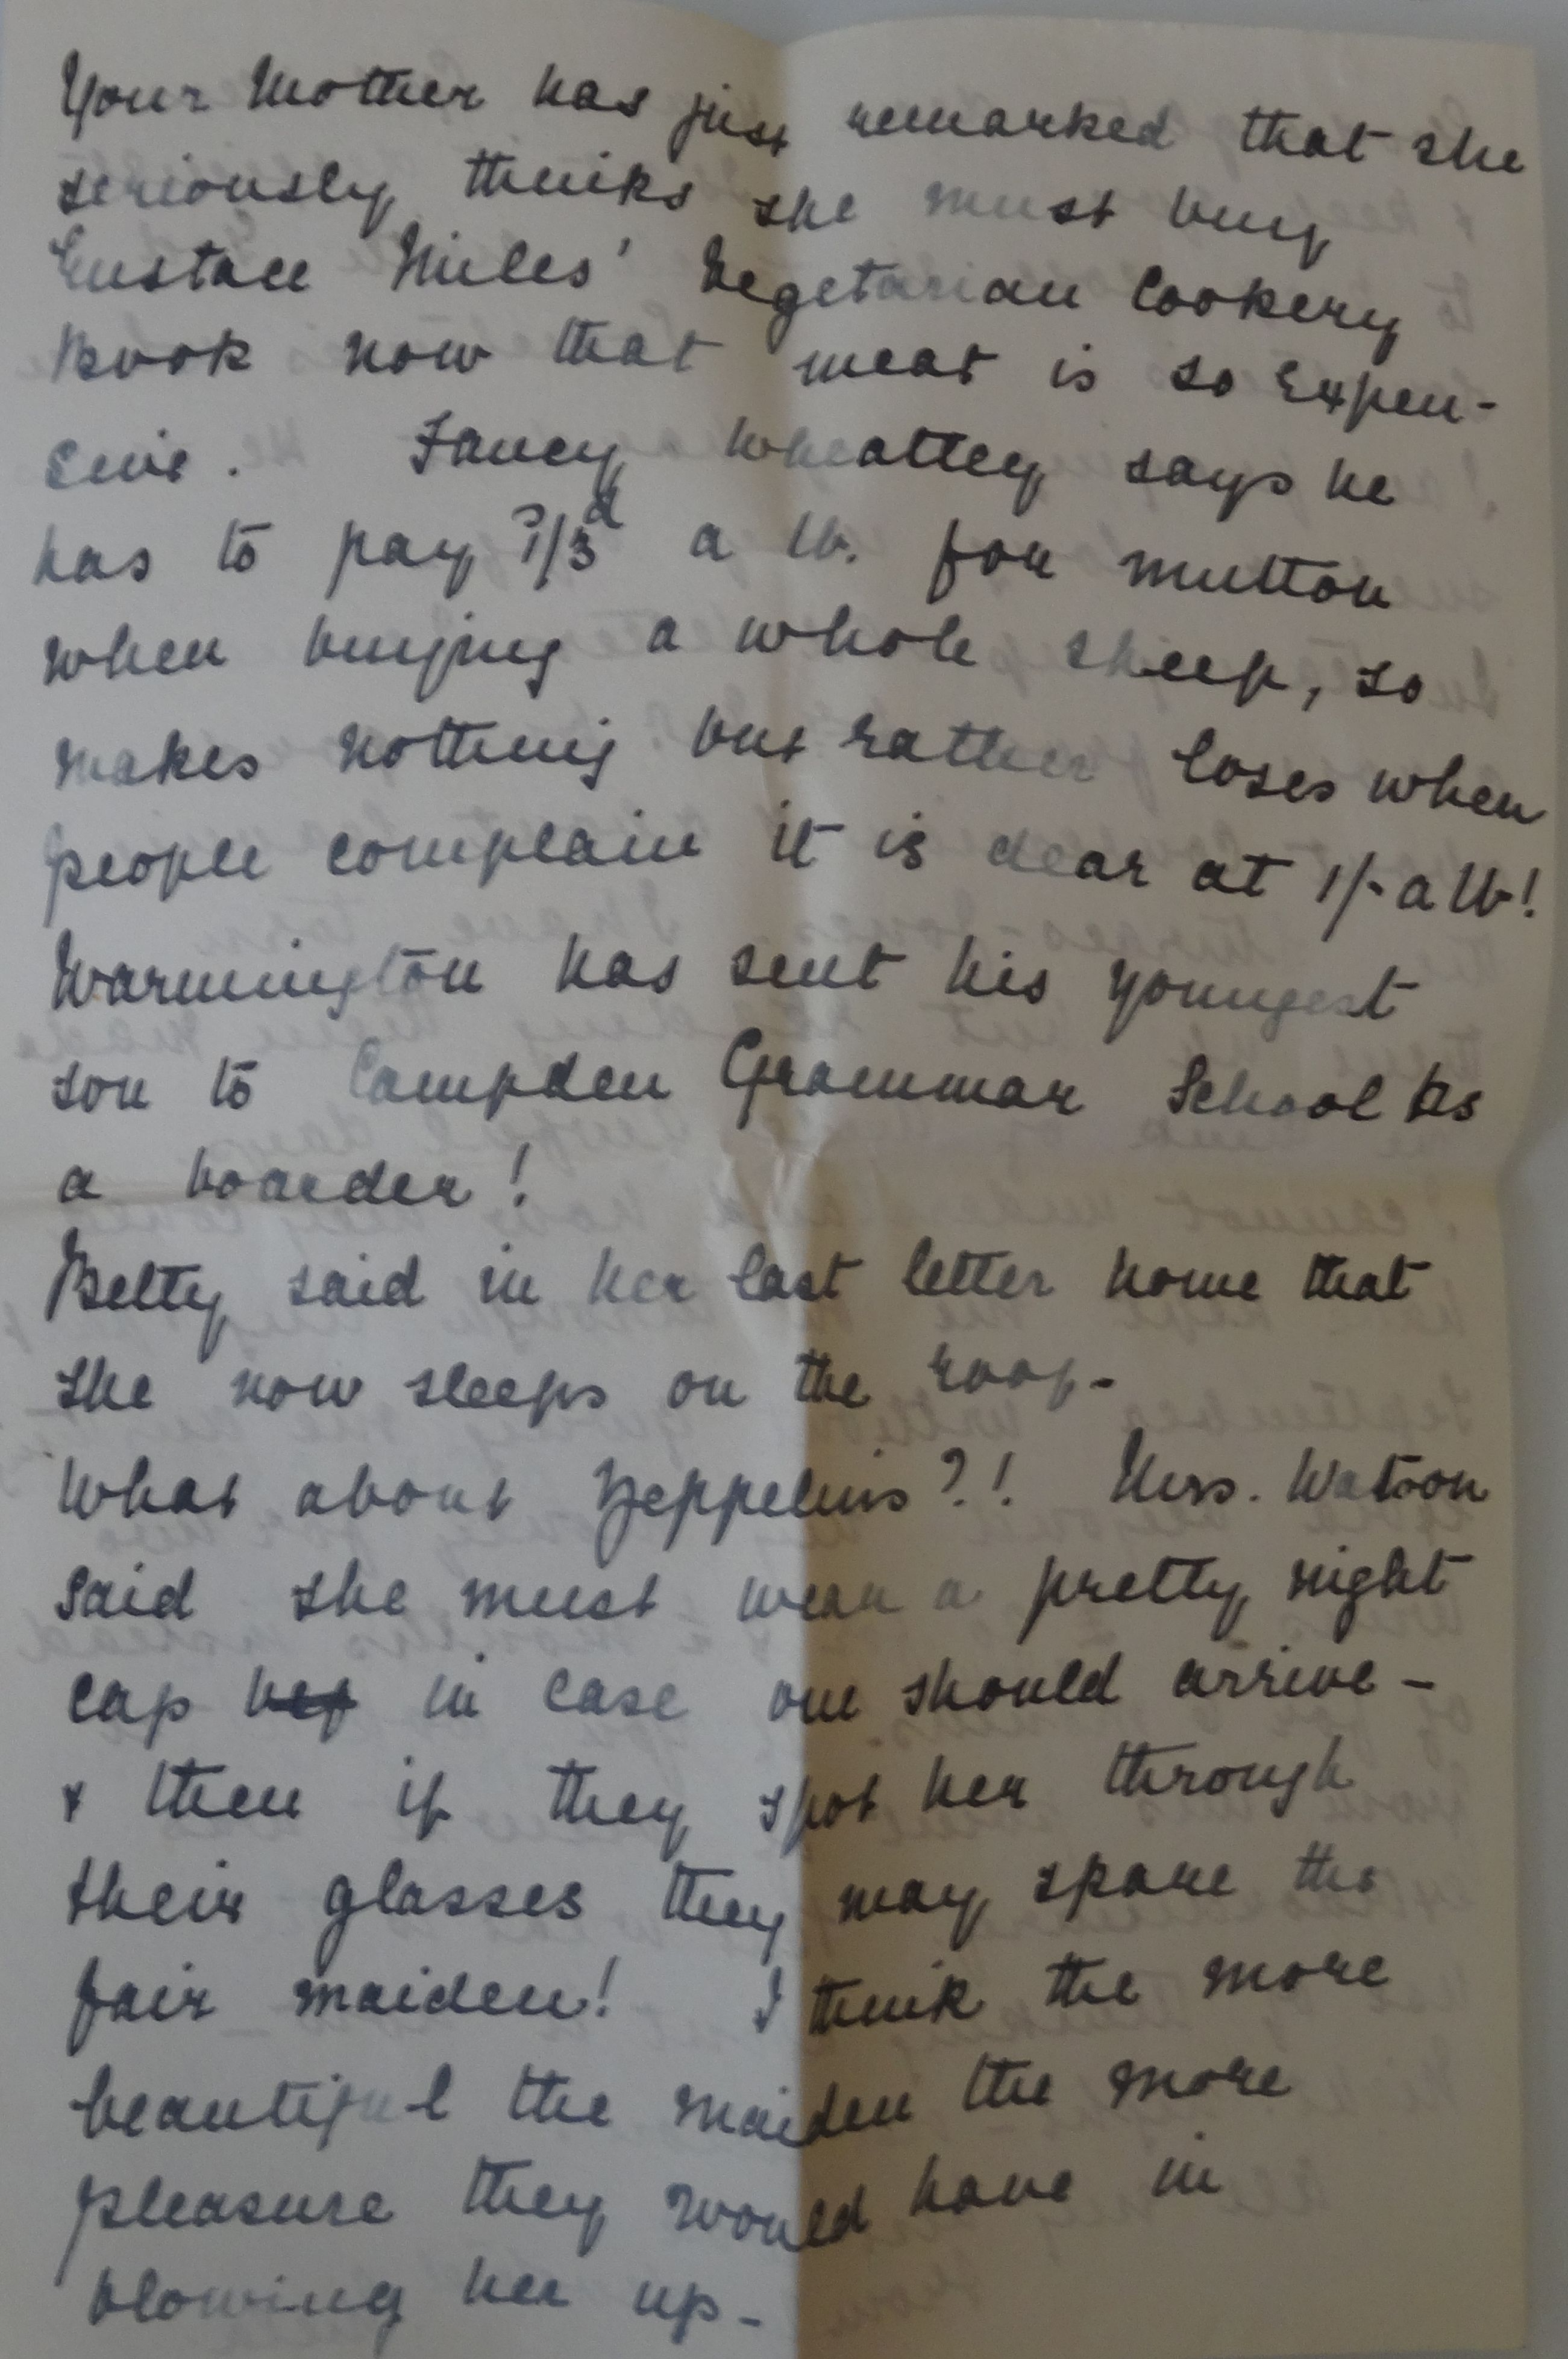 Your Mother has just remarked that she
seriously thinks she must buy
Eustace Miles' Vegetarian Cookery
Book now that meat is so expen-
sive. Fancy Wheatley says he
has to pay 1/3d a lb. for mutton
when buying a whole sheep, so
makes nothing but rather loses when
people complain it is dear at 1/- a lb!
Warmington has sent his youngest
son to Campden Grammar School as
a boarder!
Betty said in her last letter home that
she now sleeps on the roof-
What about Zeppelins?! Mrs. Watson
said she must wear a pretty night
cap in case one should arrive -
& then if they spot her through
their glasses they may spare the
fair maiden! I think the more
beautiful the maiden the more
pleasure they would have in
blowing her up -